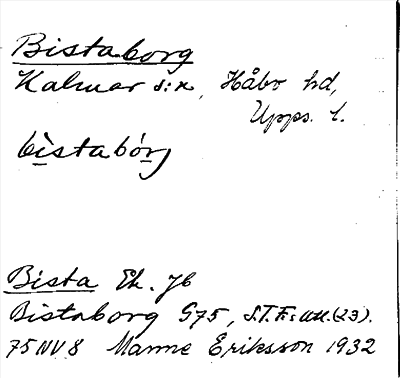 Bistaborg
Kalmar s:n, Håbo hd,
Upps. l.
bìstabórj
Bista Ek. Jb
Bistaborg G75, S.T.F:s
75 NV 8 Manne Eriksson 1932